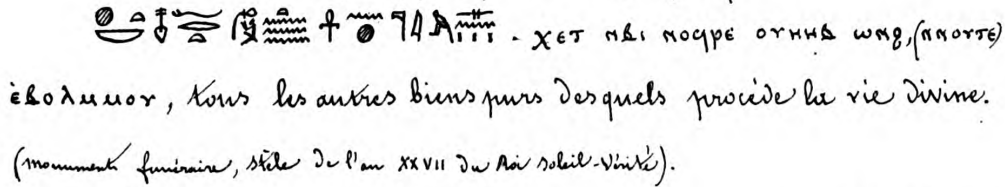 ⲭⲉⲧ ⲛⲃⲓ ⲛⲟϥⲣⲉ ⲟⲩⲏⲏⲃ ⲱⲛϩ, (ⲛⲛⲟⲩⲧⲉ)
ⲉ̀ⲃⲟⲗⲙⲙⲟⲩ, tous les autres biens purs desquels procède la vie divine.
(monument funéraire, stèle de l'an XXVII du Roi soleil-vérité).